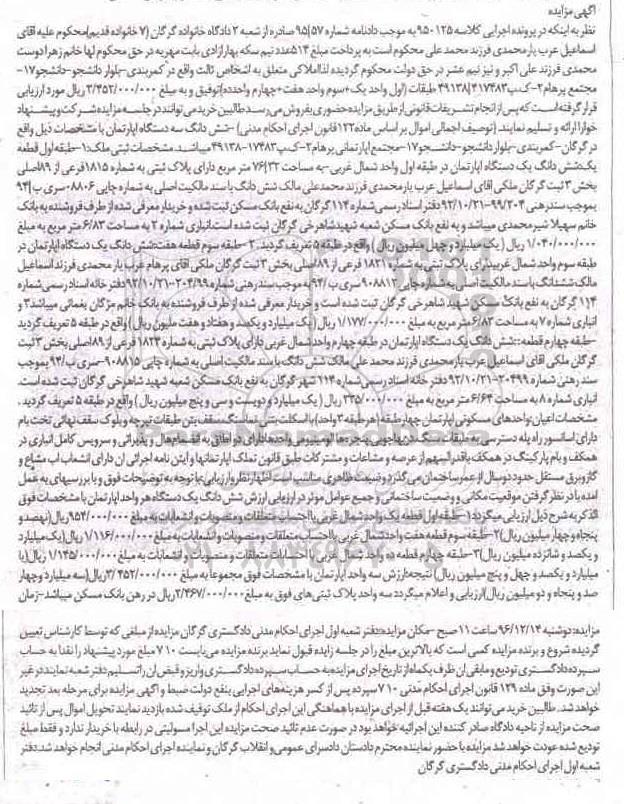 آگهی مزایده
نظر به اینکه در پرونده اجرایی کلاسه ۹۵۰۱۲۵ به موجب دادنامه شماره ۹۵|۵۷ صادره از شعبه ۲ دادگاه خانواده گرگان (۷ خانواده قدیم)محکوم علیه آقای
اسماعیل عرب یارمحمدی فرزند محمد علی محکوم است به پرداخت مبلغ ۵۱۴عدد نیم سکه بهار آزادی بابت مهریه در حق محکوم لها خانم زهرا دوست
محمدی فرزند علی اکبر و نیز نیم عشر در حق دولت محکوم گردیده لذا املاکی متعلق به اشخاص ثالث واقع در کمربندی-بلوار دانشجو-دانشجو۱۷-
مجتمع پرهام۲-ک.پ۴۱۷۴۸۳|۴۹۱۳۸ طبقات (اول واحد یک+سوم واحد هفت+چهارم واحدده)توقیف و به مبلغ ۳/۴۵۲/۰۰۰/۰۰۰ ریال مورد ارزیابی
قرار گرفته است که پس از انجام تشریفات قانونی از طریق مزایده حضوری بفروش می رسد.طالبین خرید می توانند در جلسه مزایده شرکت و پیشنهاد
خود را ارائه و تسلیم نمایند. (توصیف اجمالی اموال بر اساس ماده۱۲۲قانون اجرای احکام مدنی) -شش دانگ سه دستگاه آپارتمان با مشخصات ذیل واقع
در گرگان-کمربندی-بلوار دانشجو-دانشجو۱۷-مجتمع آپارتمانی پرهام۲-ک.پ۱۷۴۸۳-۴۹۱۳۸ میباشد. مشخصات ثبتی ملک:۱-طبقه اول قطعه
یک:شش دانگ یک دستگاه آپارتمان در طبقه اول واحد شمال غربی-به مساحت ۷۶|۳۲ متر مربع دارای پلاک ثبتی به شماره ۱۸۱۵ فرعی از ۸۹اصلی
بخش ۳ ثبت گرگان ملکی آقای اسماعیل عرب یارمحمدی فرزند محمدعلی مالک شش دانگ با سند مالکیت اصلی به شماره چاپی ۹۰۸۸۰۶-سری ب|۹۴
بموجب سند رهنی ۹۹/۲۰۴-۹۲/۱۰/۲۱ دفتر اسناد رسمی شماره ۱۱۴ گرگان به نفع بانک مسکن ثبت شده و خریدار معرفی شده از طرف فروشنده به بانک
خانم سهیلا شیرمحمدی میباشد و به نفع بانک مسکن شعبه شهید شاهرخی گرگان ثبت شده است.انباری شماره ۲ به مساحت ۶/۸۳ متر مربع به مبلغ
۱/۰۴۰/۰۰۰/۰۰۰ ریال (یک میلیارد و چهل میلیون ریال) واقع در طبقه ۵ تعریف گردید. ۲-طبقه سوم قطعه هفت:شش دانگ یک دستگاه آپارتمان در
طبقه سوم واحد شمال غربی دارای پلاک ثبتی به شماره ۱۸۲۱ فرعی از ۸۹اصلی بخش ۳ ثبت گرگان ملکی آقای پرهام عرب یار محمدی فرزند اسماعیل
مالک ششدانگ با سند مالکیت اصلی به شماره چاپی ۹۰۸۸۱۲ سری ب|۹۴ به موجب سند رهنی شماره ۲۰۴۹۹-۹۲/۱۰/۲۱ دفتر خانه اسناد رسمی شماره
۱۱۴ گرگان به نفع بانک مسکن شهید شاهرخی گرگان ثبت شده است و خریدار معرفی شده از طرف فروشنده به بانک خانم مژگان یغمائی میباشد۳ و
انباری شماره ۷ به مساحت ۶/۸۲متر مربع به مبلغ ۱/۱۷۷/۰۰۰/۰۰۰ ریال (یک میلیارد و یکصد و هفتاد و هفت ملیون ریال) واقع در طبقه ۵ تعریف گردید
-طبقه چهارم قطعه۱۰:شش دانگ یک دستگاه آپارتمان در طبقه چهارم واحد شمال غربی دارای پلاک ثبتی به شماره ۱۸۲۴ فرعی از ۸۹اصلی بخش ۳ ثبت
گرگان ملکی آقای اسماعیل عرب یارمحمدی فرزند محمد علی مالک شش دانگ با سند مالکیت اصلی به شماره چاپی ۹۰۸۸۱۵-سری ب/۹۴ بموجب
سند رهنی شماره ۲۰۴۹۹-۹۲/۱۰/۲۱ دفتر خانه اسناد رسمی شماره ۱۱۴ شهر گرگان به نفع بانک مسکن شعبه شهید شاهرخی گرگان ثبت شده است.
انباری شماره ۸ به مساحت ۶/۶۴ متر مربع به مبلغ ۲۳۵/۰۰۰/۰۰۰ ریال (یک میلیارد و دویست و سی و پنج میلیون ریال) واقع در طبقه ۵ تعریف گردید.
مشخصات اعیان:واحدهای مسکونی آپارتمان چهار طبقه (هر طبقه ۳واحد) با اسکلت بتنی فنداسیونگ سقف بتن طبقات تیرچه و بلوک سقف نهائی تخت بام
دارای آسانسور راه پله دسترسی به طبقات سنگ دربها چوبی پنجره ها آلومینیومی واحدها دارای دو اطاق به انضمام هال و پذیرائی و سرویس کامل انباری در
همکف و بام پارکینگ در همکف باقدرالسهم از عرصه و مشاعات و مشترکات طبق قانون تملک آپارتمانها و آیین نامه اجرائی آن دارای انشعاب آب مشاع و
گاز و برق مستقل حدود دوسال از عمر ساختمان می گذرد وضعیت ظاهری مناسب است اظهار نظر و ارزیابی:با توجه به توضیحات فوق و با بررسیهای به عمل
آمده با در نظر گرفتن موقعیت مکانی و وضعیت ساختمانی و جمیع عوامل موثر در ارزیابی ارزش شش دانگ یک دستگاه هر واحد آپارتمان با مشخصات فوق
الذکر به شرح ذیل ارزیابی میگردد:۱-طبقه اول قطعه یک واحد شمال غربی با احتساب متعلقات و منصوبات و انشعابات به مبلغ ۹۵۴/۰۰۰/۰۰۰ریال(نهصد و
پنجاه و چهار میلیون ریال)۲-طبقه سوم قطعه هفت واحد شمال غربی با احتساب متعلقات و منصوبات و انشعابات به مبلغ ۱/۱۱۶/۰۰۰/۰۰۰ریال(یک میلیارد
و یکصد و شانزده میلیون ریال)۳-طبقه چهارم قطعه ده واحد شمال غربی با احتسابات متعلقات و منصوبات و انشعابات به مبلغ ۱/۱۴۵/۰۰۰/۰۰۰ ریال(یا
میلیارد و یکصد و چهل و پنج میلیون ریال) نتیجه:ارزش سه واحد آپارتمان با مشخصات فوق مجموعا به مبلغ ۳/۴۵۲/۰۰۰/۰۰۰ریال(سه میلیارد وچهار
صد و پنجاه و دو میلیون ریال)ارزیابی و اعلام میگردد سه واحد پلاک ثبتی های فوق به مبلغ ۲/۴۶۷/۰۰۰/۰۰۰ ریال در رهن بانک مسکن میباشد-زمان
مزایده:دوشنبه ۹۶/۱۲/۱۴ ساعت ۱۱ صبح -مکان مزایده:دفتر شعبه اول اجرای احکام مدنی دادگستری گرگان مزایده از مبلغی که توسط کارشناس تعیین
گردیده شروع و برنده مزایده کسی است که بالاترین مبلغ را در جلسه زایده قبول نماید برنده مزایده می بایست ۱۰ ٪ مبلغ مورد پیشنهاد را نقدا به حساب
سپرده دادگستری تودیع و مابقی آن ظرف یکماه از تاریخ اجرای مزایده به حساب سپرده دادگستری واریز و قبض آن را تسلیم دفتر شعبه نمایند در غیر
این صورت وفق ماده ۱۲۹ قانون اجرای احکام مدنی ۱۰ ٪ سپرده پس از کسر هزینه های اجرایی بنفع دولت ضبط و آگهی مزایده برای مرحله بعد تجدید
خواهد شد. طالبین خرید می توانند یک هفته قبل از اجرای مزایده با هماهنگی این اجرای احکام از ملک توقیف شده بازدید نمایند تحویل اموال پس از تائید
صحت مزایده از ناحیه دادگاه صادر کننده این اجرائیه خواهد بود در صورت عدم تائید صحت مزایده این اجرا مسولیتی در رابطه با خریدار ندارد و فقط مبلغ
تودیع شده عودت خواهد شد مزایده با حضور نماینده محترم دادستان دادسرای عمومی و انقلاب گرگان و نماینده اجرای احکام مدنی انجام خواهد شد.دفتر
شعبه اول اجرای احکام مدنی دادگستری گرگان